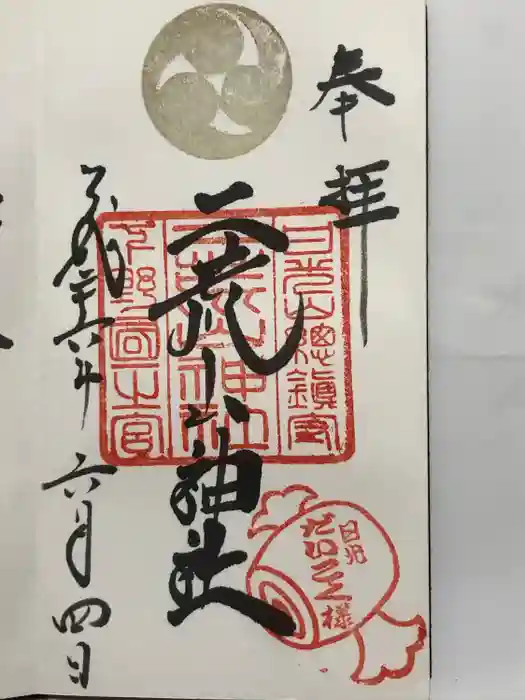 奉拝
日光山總鎮守
二荒山神社
二荒山神社
下野國一之宮
平成廿六年
六月四日
日光
だいこく様